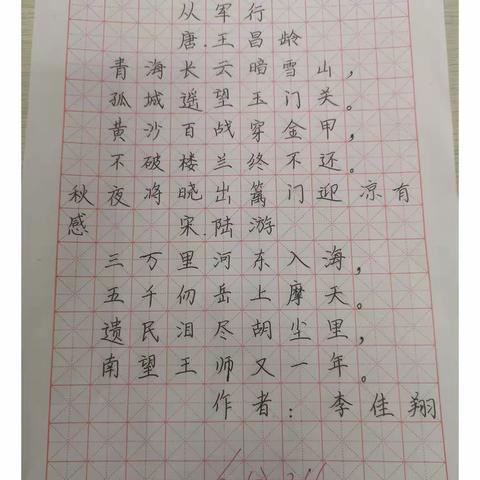 从军行
唐.王昌龄
青海长云暗雪山，
孤城遥望玉门关。
黄沙百战穿金甲，
不破楼兰终不还。
秋夜将晓出篱门迎凉有
感 宋.陆游
三万里河东入海，
五千仞岳上摩天。
遗民泪尽胡尘里，
南望王师又一年。
作者：李佳翔